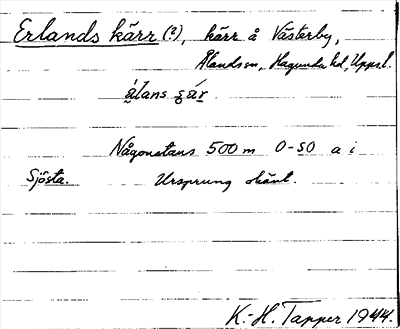 Erlands kärr (?), kärr å Västerby,
Ålands sn, Hagunda hd, Uppsl.
álans ꞩǽr
Någonstans 500 m O-SO a i
Sjösta. Ursprung okänt.
K.-H. Tapper 1944.